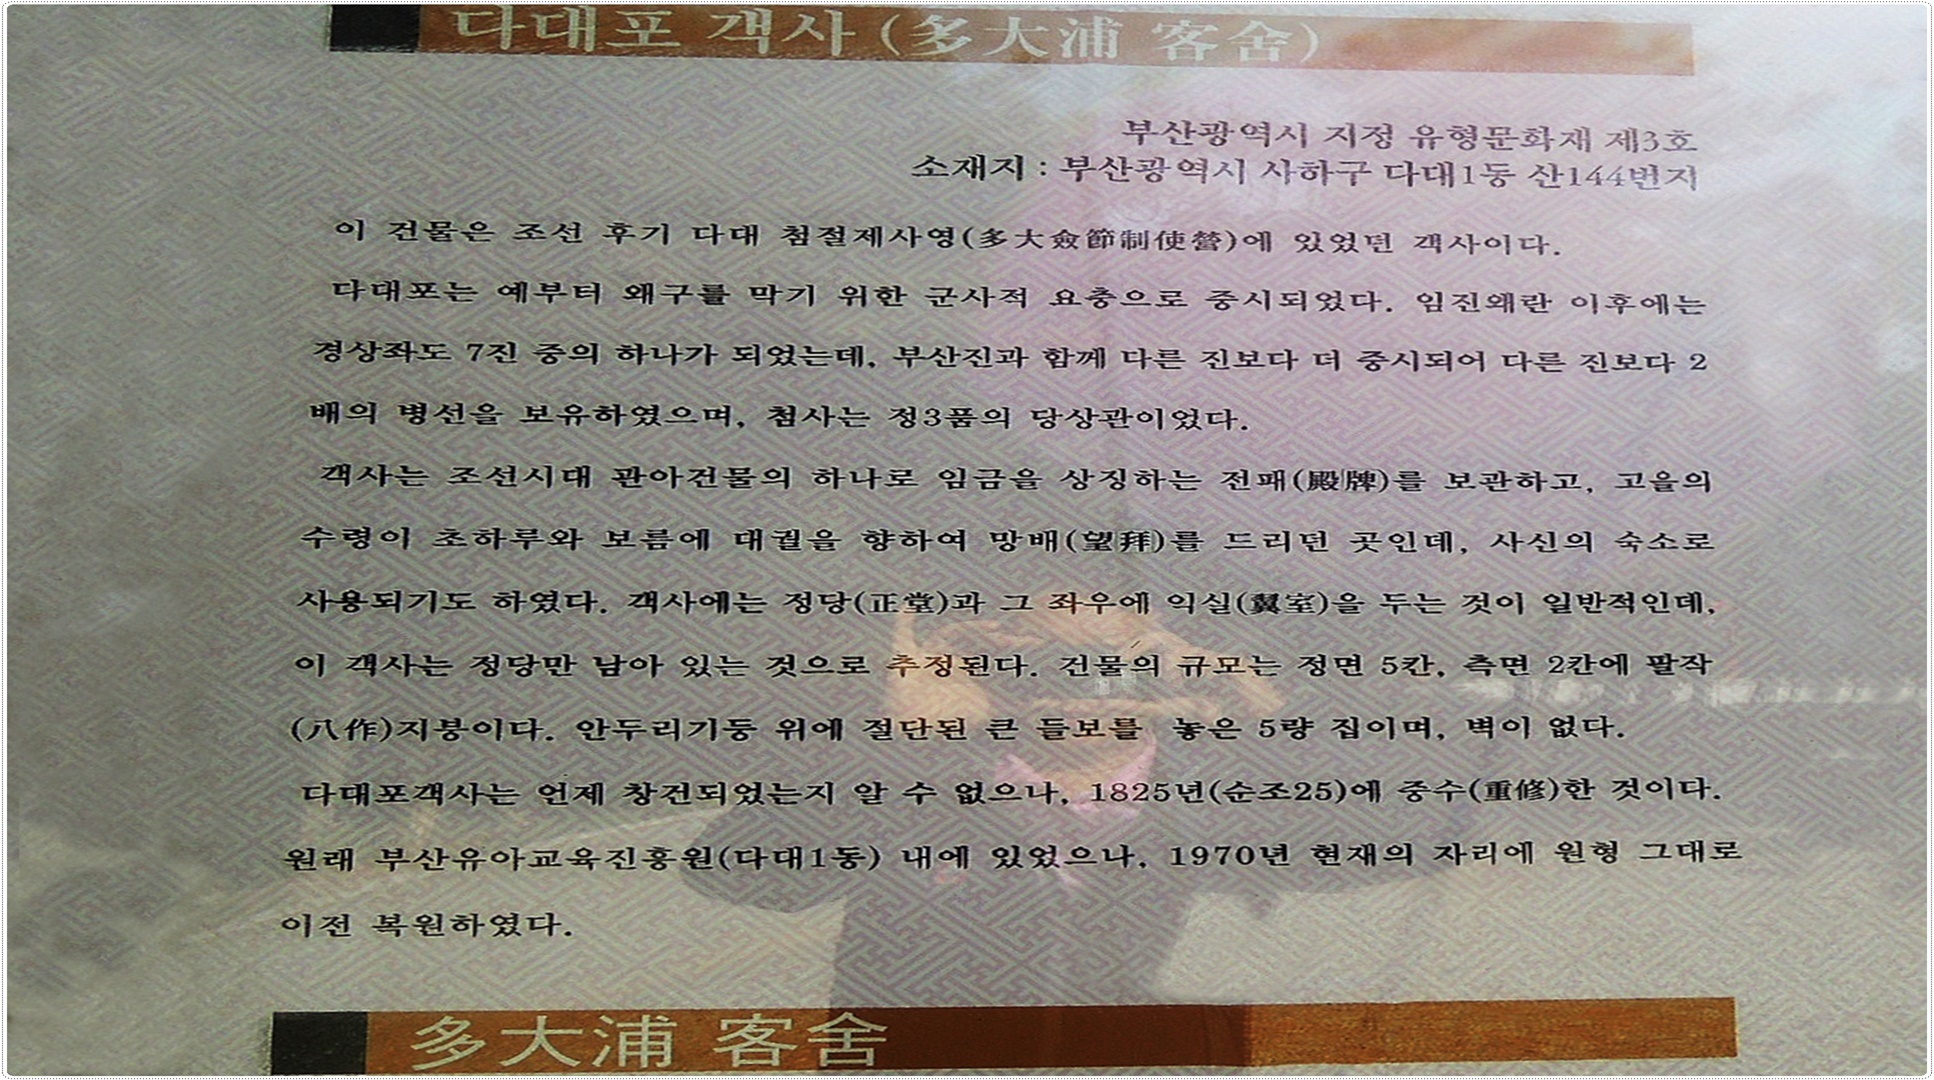 다대포 객사 (多大浦 客舍)
부산광역시 지정 유형문화재 제3호
소재지 : 부산광역시 사하구 다대1동 산144번지
이 건물은 조선 후기 다대 첨절제사영(多大僉節制使營)에 있었던 객사이다.
다대포는 예부터 왜구를 막기 위한 군사적 요충으로 중시되었다. 임진왜란 이후에는
경상좌도 7진 중의 하나가 되었는데, 부산진과 함께 다른 진보다 더 중시되어 다른 진보다 2
배의 병선을 보유하였으며, 첨사는 정3품의 당상관이었다.
객사는 조선시대 관아건물의 하나로 임금을 상징하는 전패(殿牌)를 보관하고, 고을의
수령이 초하루와 보름에 대궐을 향하여 망배(望拜)를 드리던 곳인데, 사신의 숙소로
사용되기도 하였다. 객사에는 정당(正堂)과 그 좌우에 익실(翼室)을 두는 것이 일반적인데,
이 객사는 정당만 남아 있는 것으로 추정된다. 건물의 규모는 정면 5칸, 측면 2칸에 팔작
(八作)지붕이다. 안두리기둥 위에 절단된 큰 들보를 놓은 5량 집이며, 벽이 없다.
다대포객사는 언제 창건되었는지 알 수 없으나, 1825년(순조25)에 중수(重修)한 것이다.
원래 부산유아교육진흥원(다대1동) 내에 있었으나, 1970년 현재의 자리에 원형 그대로
이전 복원하였다.
多大浦 客舍